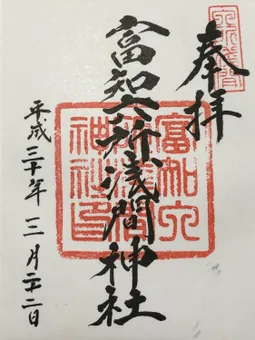 奉拝
富知六所浅間神社
平成三十年十二月二十二日
富知六
所浅間
神社印